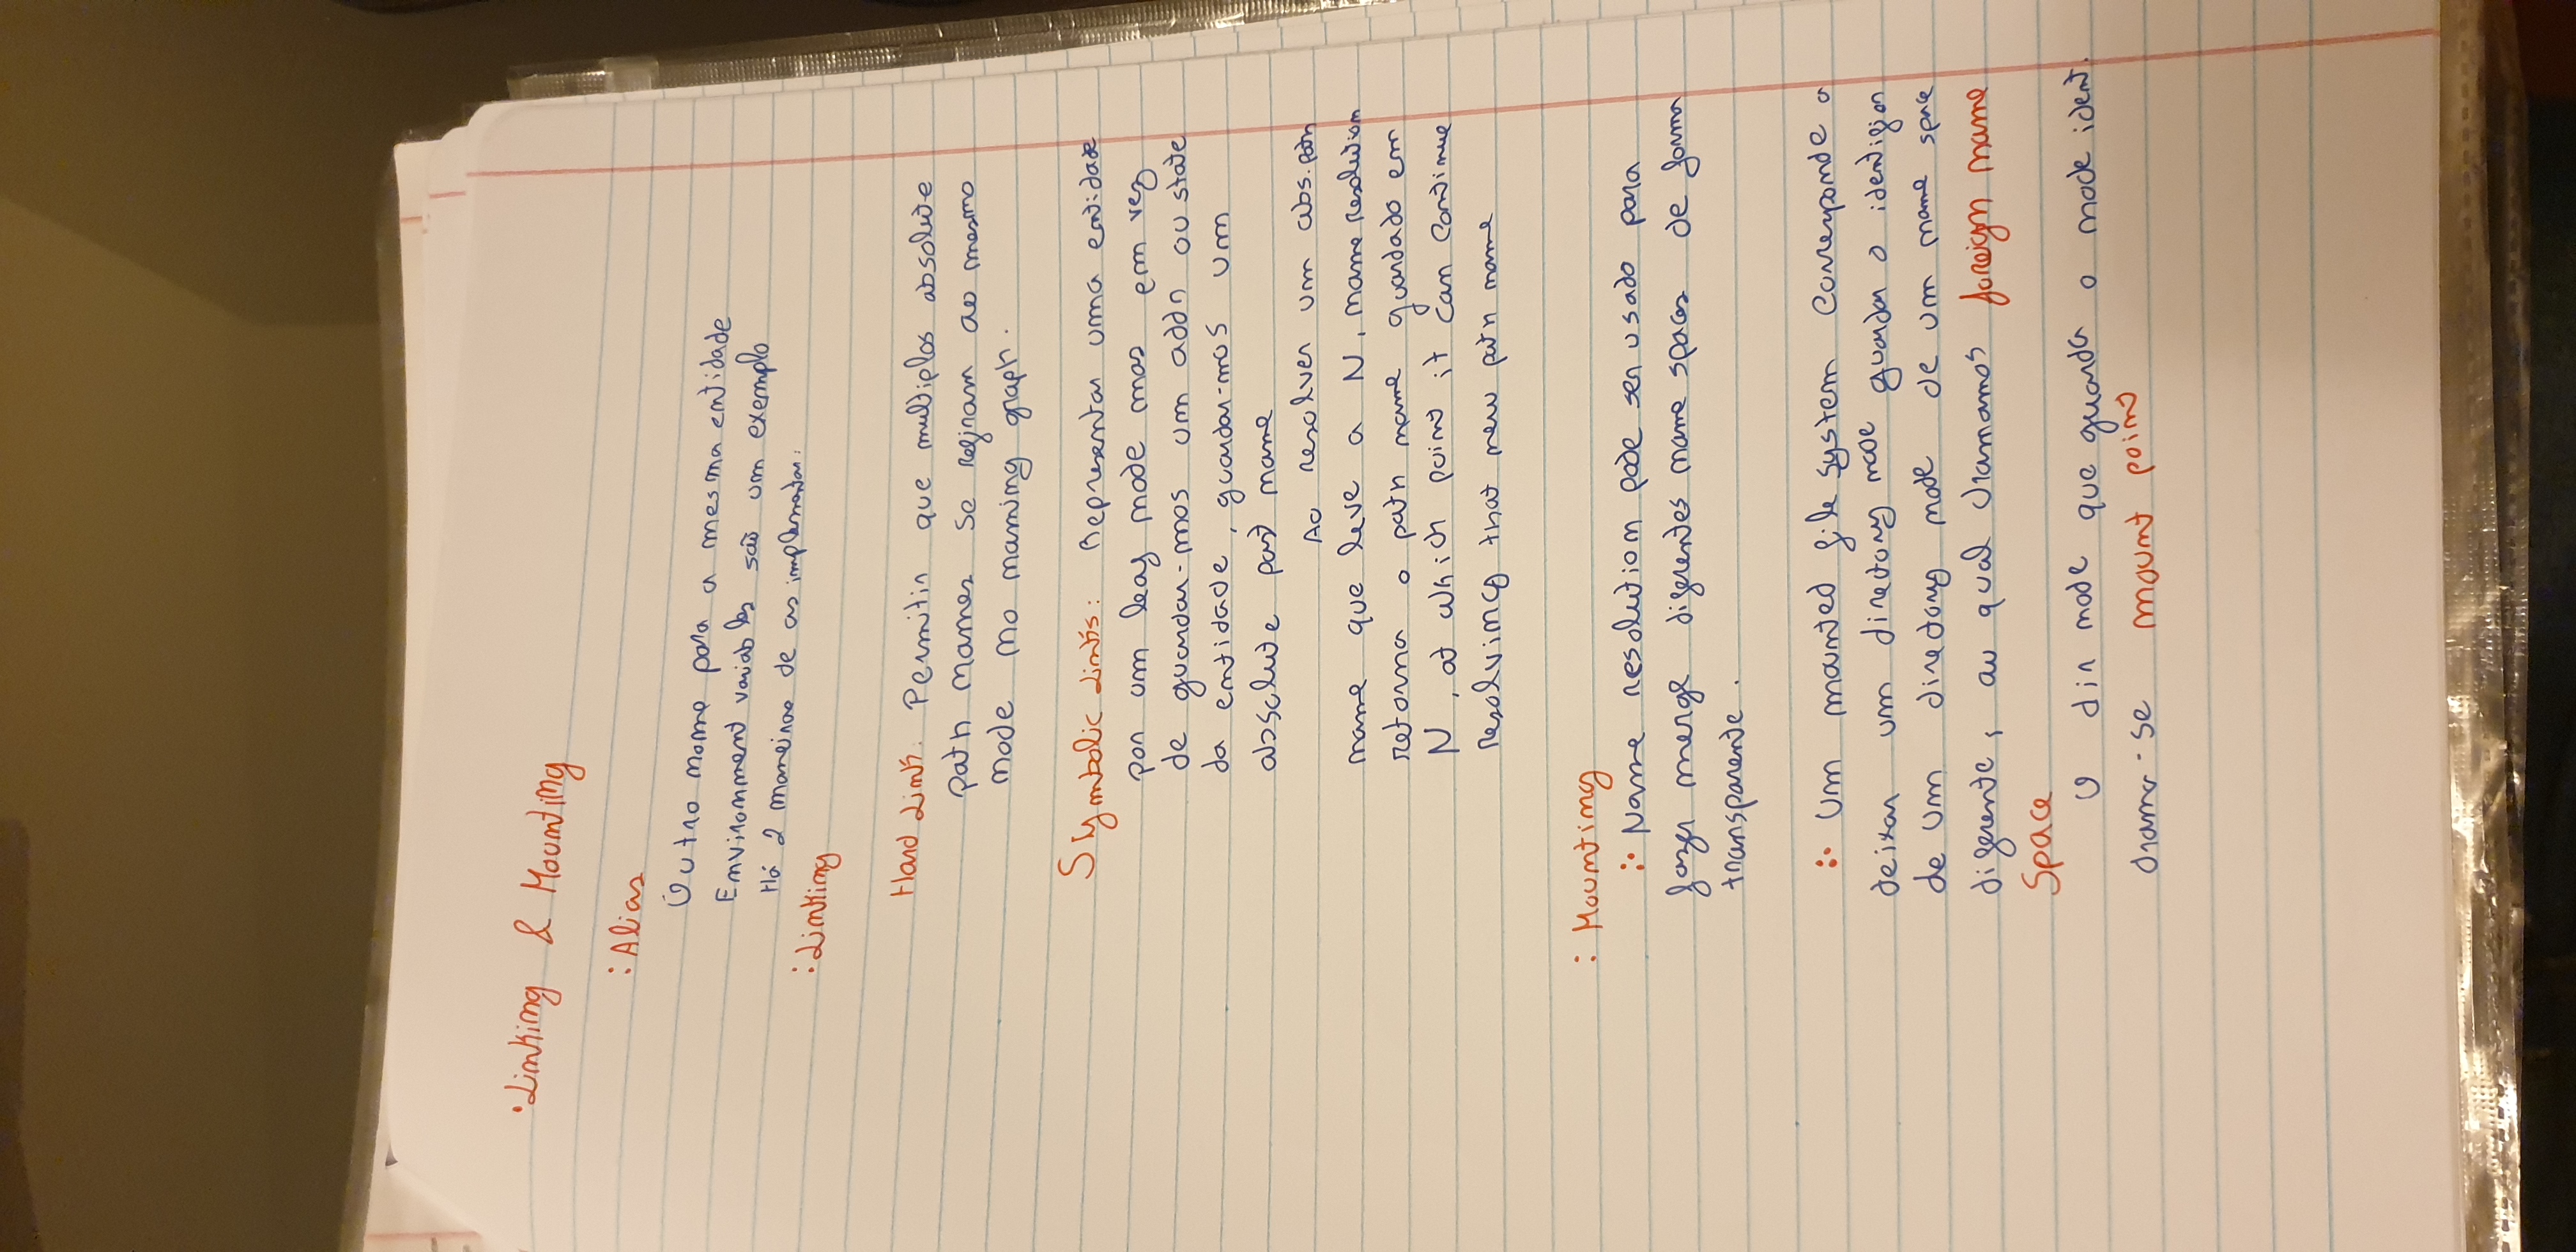 • Linking & Mounting
: Alias
Outro nome para a mesma entidade
Environment variables são um exemplo
Há 2 maneiras de as implementar:
: Linking
Hard Link: Permitir que multiplos absolute
path names se refiram ao mesmo
node no naming graph.
Symbolic Links: Representar uma entidade
por um leaf node mas em vez
de guardar-mos um addr ou state
da entidade, guardar-mos um
absolute pat name
Ao resolver um abs. path
name que leve a N, name resolution
retorna o path name guardado em
N, at which point it can continue
resolving that new path name
: Mounting
:· Name resolution pode ser usado para
fazer merge diferentes name spaces de forma
transparente.
:· Um mounted file system corresponde a
deixar um directory node guardar o identifier
de um directory node de um name space
diferente, ao qual chamamos foreign name
Space
O dir node que guarda o node ident.
chama-se mount point